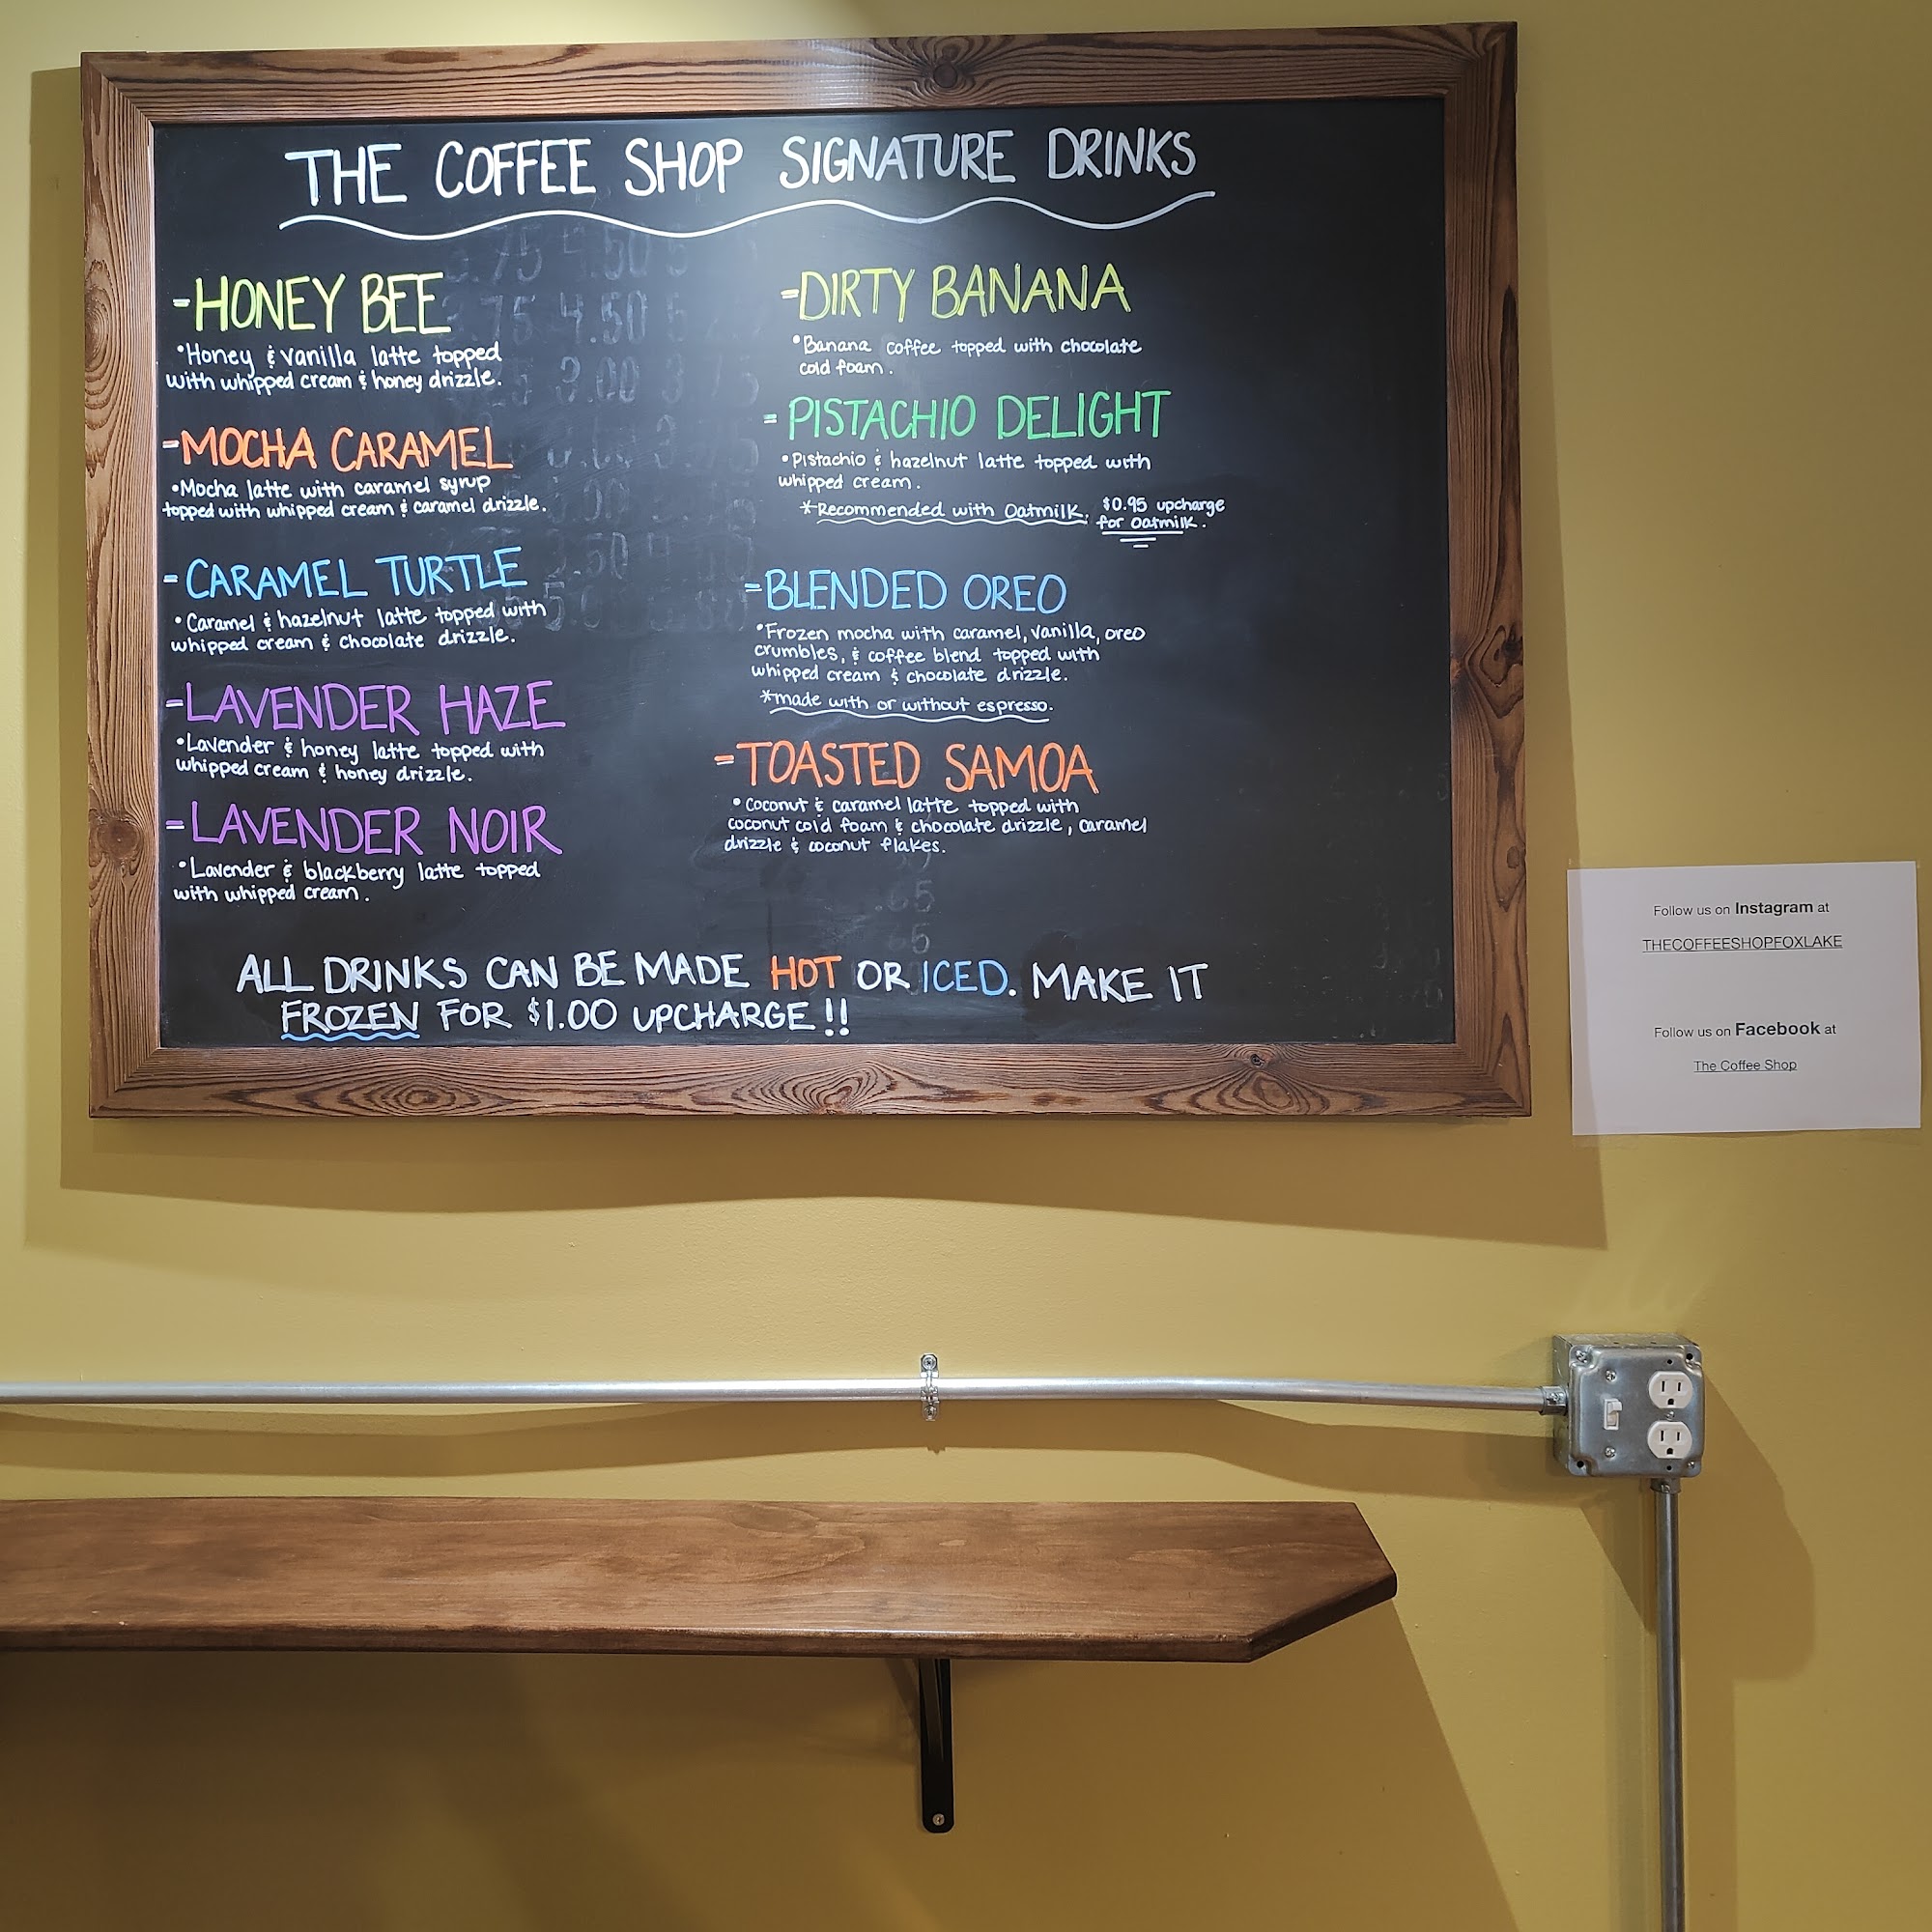 THE COFFEE SHOP SIGNATURE DRINKS
-HONEY BEE
•Honey & vanilla latte topped
with whipped cream & honey drizzle.
-MOCHA CARAMEL
•Mocha latte with caramel syrup
topped with whipped cream & caramel drizzle.
-CARAMEL TURTLE
•Caramel & hazelnut latte topped with
whipped cream & chocolate drizzle.
-LAVENDER HAZE
•Lavender & honey latte topped with
whipped cream & honey drizzle.
-LAVENDER NOIR
•Lavender & blackberry latte topped
with whipped cream.
-DIRTY BANANA
•Banana coffee topped with chocolate
cold foam.
-PISTACHIO DELIGHT
•Pistachio & hazelnut latte topped with
whipped cream.
*Recommended with Oatmilk. $0.95 upcharge
for Oatmilk.
-BLENDED OREO
•Frozen mocha with caramel, vanilla, oreo
crumbles, & coffee blend topped with
whipped cream & chocolate drizzle.
*made with or without espresso.
-TOASTED SAMOA
•Coconut & caramel latte topped with
coconut cold foam & chocolate drizzle, caramel
drizzle & coconut flakes.
ALL DRINKS CAN BE MADE HOT OR ICED. MAKE IT
FROZEN FOR $1.00 UPCHARGE!!
Follow us on Instagram at
THECOFFEESHOPFOXLAKE
Follow us on Facebook at
The Coffee Shop